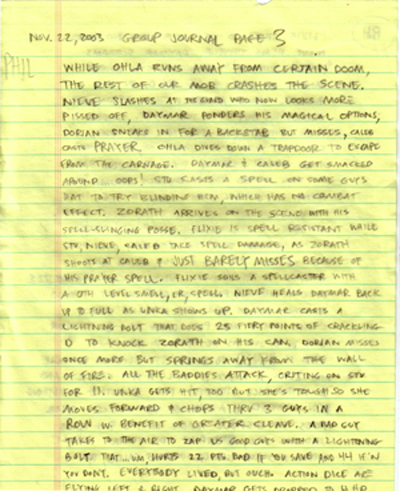 NOV. 22, 2003 GROUP JOURNAL PAGE 3
PHIL
WHILE OHLA RUNS AWAY FROM CERTAIN DOOM,
THE REST OF OUR MOB CRASHES THE SCENE.
NIEVE SLASHES AT THE GUARD WHO NOW LOOKS MORE
PISSED OFF, DAYMAR PONDERS HIS MAGICAL OPTIONS,
DORIAN SNEAKS IN FOR A BACKSTAB BUT MISSES, CALEB
CASTS PRAYER. OHLA DIVES DOWN A TRAPDOOR TO ESCAPE
FROM THE CARNAGE. DAYMAR & CALEB GET SMACKED
AROUND. OOPS! STU CASTS A SPELL ON SOME GUYS
HAT TO TRY BLINDING HIM, WHICH HAS NO COMBAT
EFFECT. ZORATH ARRIVES ON THE SCENE WITH HIS
SPELL-SLINGING POSSE. FLIXIE IS SPELL RESISTANT WHILE
STU, NIEVE, CALEB TAKE SPELL DAMAGE, AS ZORATH
SHOOTS AT CALEB & JUST BARELY MISSES BECAUSE OF
HIS PRAYER SPELL. FLIXIE SOILS A SPELLCASTER WITH
A 0TH LEVEL SMELL, ER, SPELL. NIEVE HEALS DAYMAR BACK
UP TO FULL AS UNKA SHOWS UP. DAYMAR CASTS A
LIGHTNING BOLT THAT DOES 25 FIERY POINTS OF CRACKLING
D TO KNOCK ZORATH ON HIS CAN. DORIAN MISSED
ONCE MORE BUT SPRINGS AWAY FROM THE WALL
OF FIRE. ALL THE BADDIES ATTACK, CRITING ON STU
FOR 13. UNKA GETS HIT, TOO BUT SHE'S TOUGH SO SHE
MOVES FORWARD & CHOPS THRU 3 GUYS IN A
ROW W. BENEFIT OF GREATER CLEAVE. A BAD GUY
TAKES TO THE AIR TO ZAP US GOOD GUYS WITH A LIGHTNING
BOLT THAT...UM, HURTS 22 PTS. BAD IF YOU SAVE AND 44 IF'N
YOU DON'T. EVERYBODY LIVED, BUT OUCH. ACTION DICE ARE
FLYING LEFT & RIGHT. DAYMAR GETS DROPPED TO 4 HP